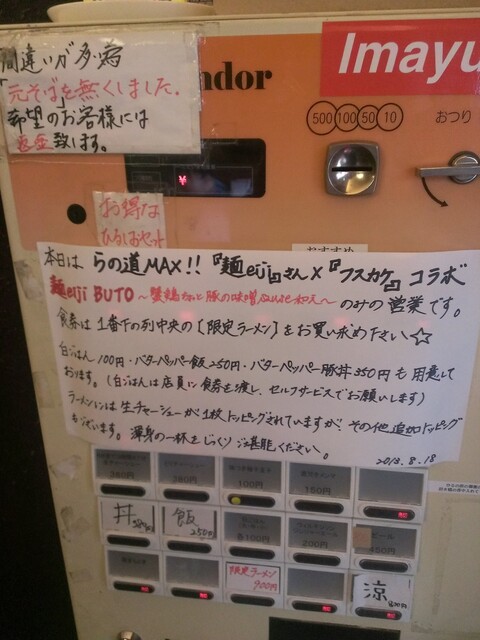 間違いが多い為
「元そば」を無くしました。
希望のお客様には
返金致します。
ndor
Imayu
500 100 50 10
おつり
¥
お得な
ひるしおセット
おすすめ
本日は らの道MAX!! 『麺eiji』さん×『フスカケ』 コラボ
麺eiji BUTO
のみの営業です。
食券は1番下の列中央の【限定ラーメン】をお買い求め下さい☆
白ごはん 100円・バターペッパー飯250円・バターペッパー豚丼350円も用意して
おります。(白ごはんは店員に食券を渡し、セルフサービスでお願いします)
ラーメンには生チャーシューが1枚トッピングされていますが、その他追加トッピング
もございます。渾身の一杯をじっくりご堪能ください。
2013.8.18
280円
280円
100円
150円
丼
飯
250円
各100円
200円
ビール
450円
限定ラーメン
900円
涼